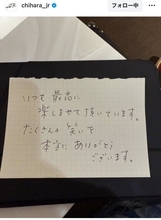 chihara_jr
フォロー中
いつも最高に
楽しませて頂いています。
たくさんの笑いを
本当にありがとう
ございます。